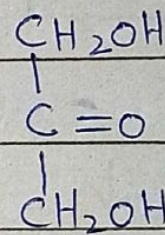 CH2OH
|
C=O
|
CH2OH